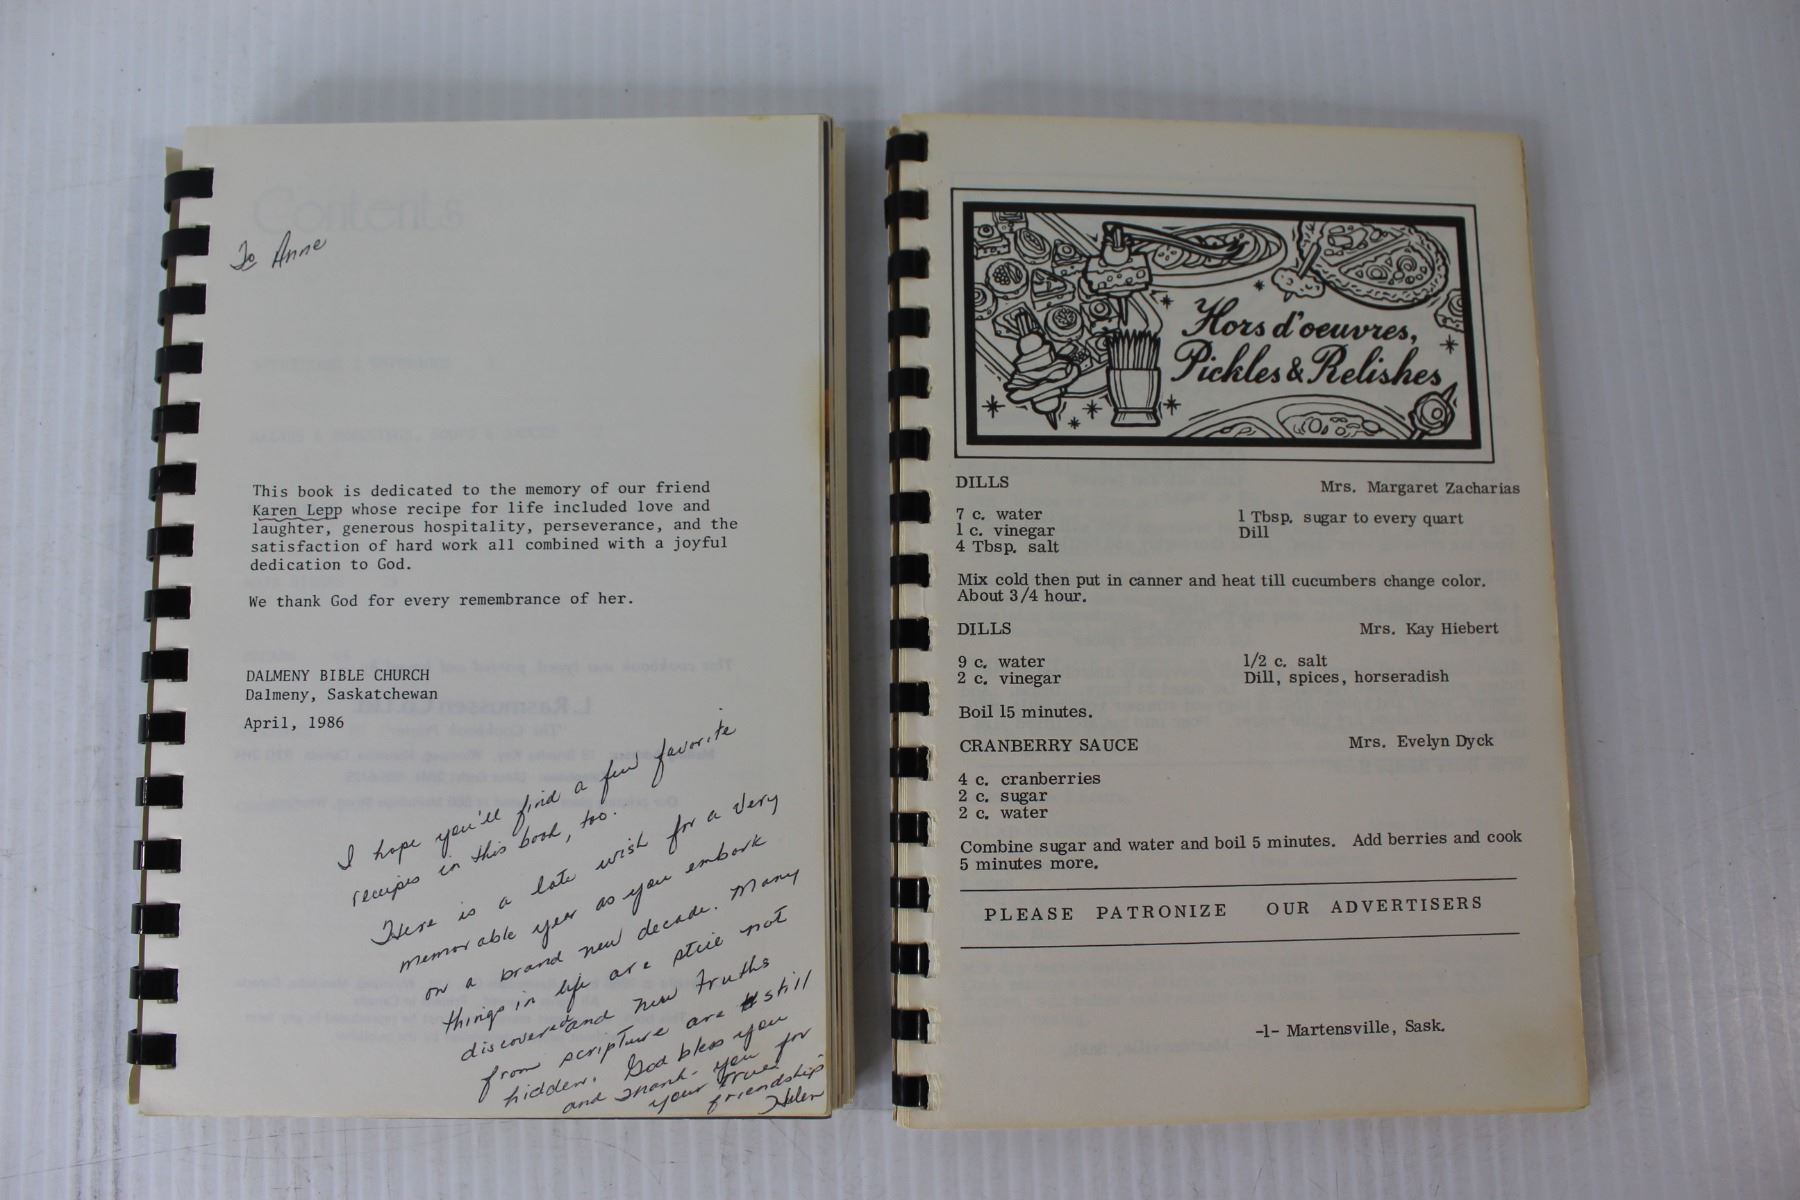 Contents
To Anne
This book is dedicated to the memory of our friend
Karen Lepp whose recipe for life included love and
laughter, generous hospitality, perseverance, and the
satisfaction of hard work all combined with a joyful
dedication to God.
We thank God for every remembrance of her.
DALMENY BIBLE CHURCH
Dalmeny, Saskatchewan
April, 1986
I hope you'll find a few favorite
recipes in this book, too.
Here is a late wish for a very
memorable year as you embark
on a brand new decade. Many
things in life are still not
discovered and new truths
from scripture are still
hidden. God bless you
and thank-you for
your true
friendship
Helen
Hors d'oeuvres,
Pickles & Relishes
DILLS Mrs. Margaret Zacharias
7 c. water 1 Tbsp. sugar to every quart
1 c. vinegar Dill
4 Tbsp. salt
Mix cold then put in canner and heat till cucumbers change color.
About 3/4 hour.
DILLS Mrs. Kay Hiebert
9 c. water 1/2 c. salt
2 c. vinegar Dill, spices, horseradish
Boil 15 minutes.
CRANBERRY SAUCE Mrs. Evelyn Dyck
4 c. cranberries
2 c. sugar
2 c. water
Combine sugar and water and boil 5 minutes. Add berries and cook
5 minutes more.
PLEASE PATRONIZE OUR ADVERTISERS
-1- Martensville, Sask.